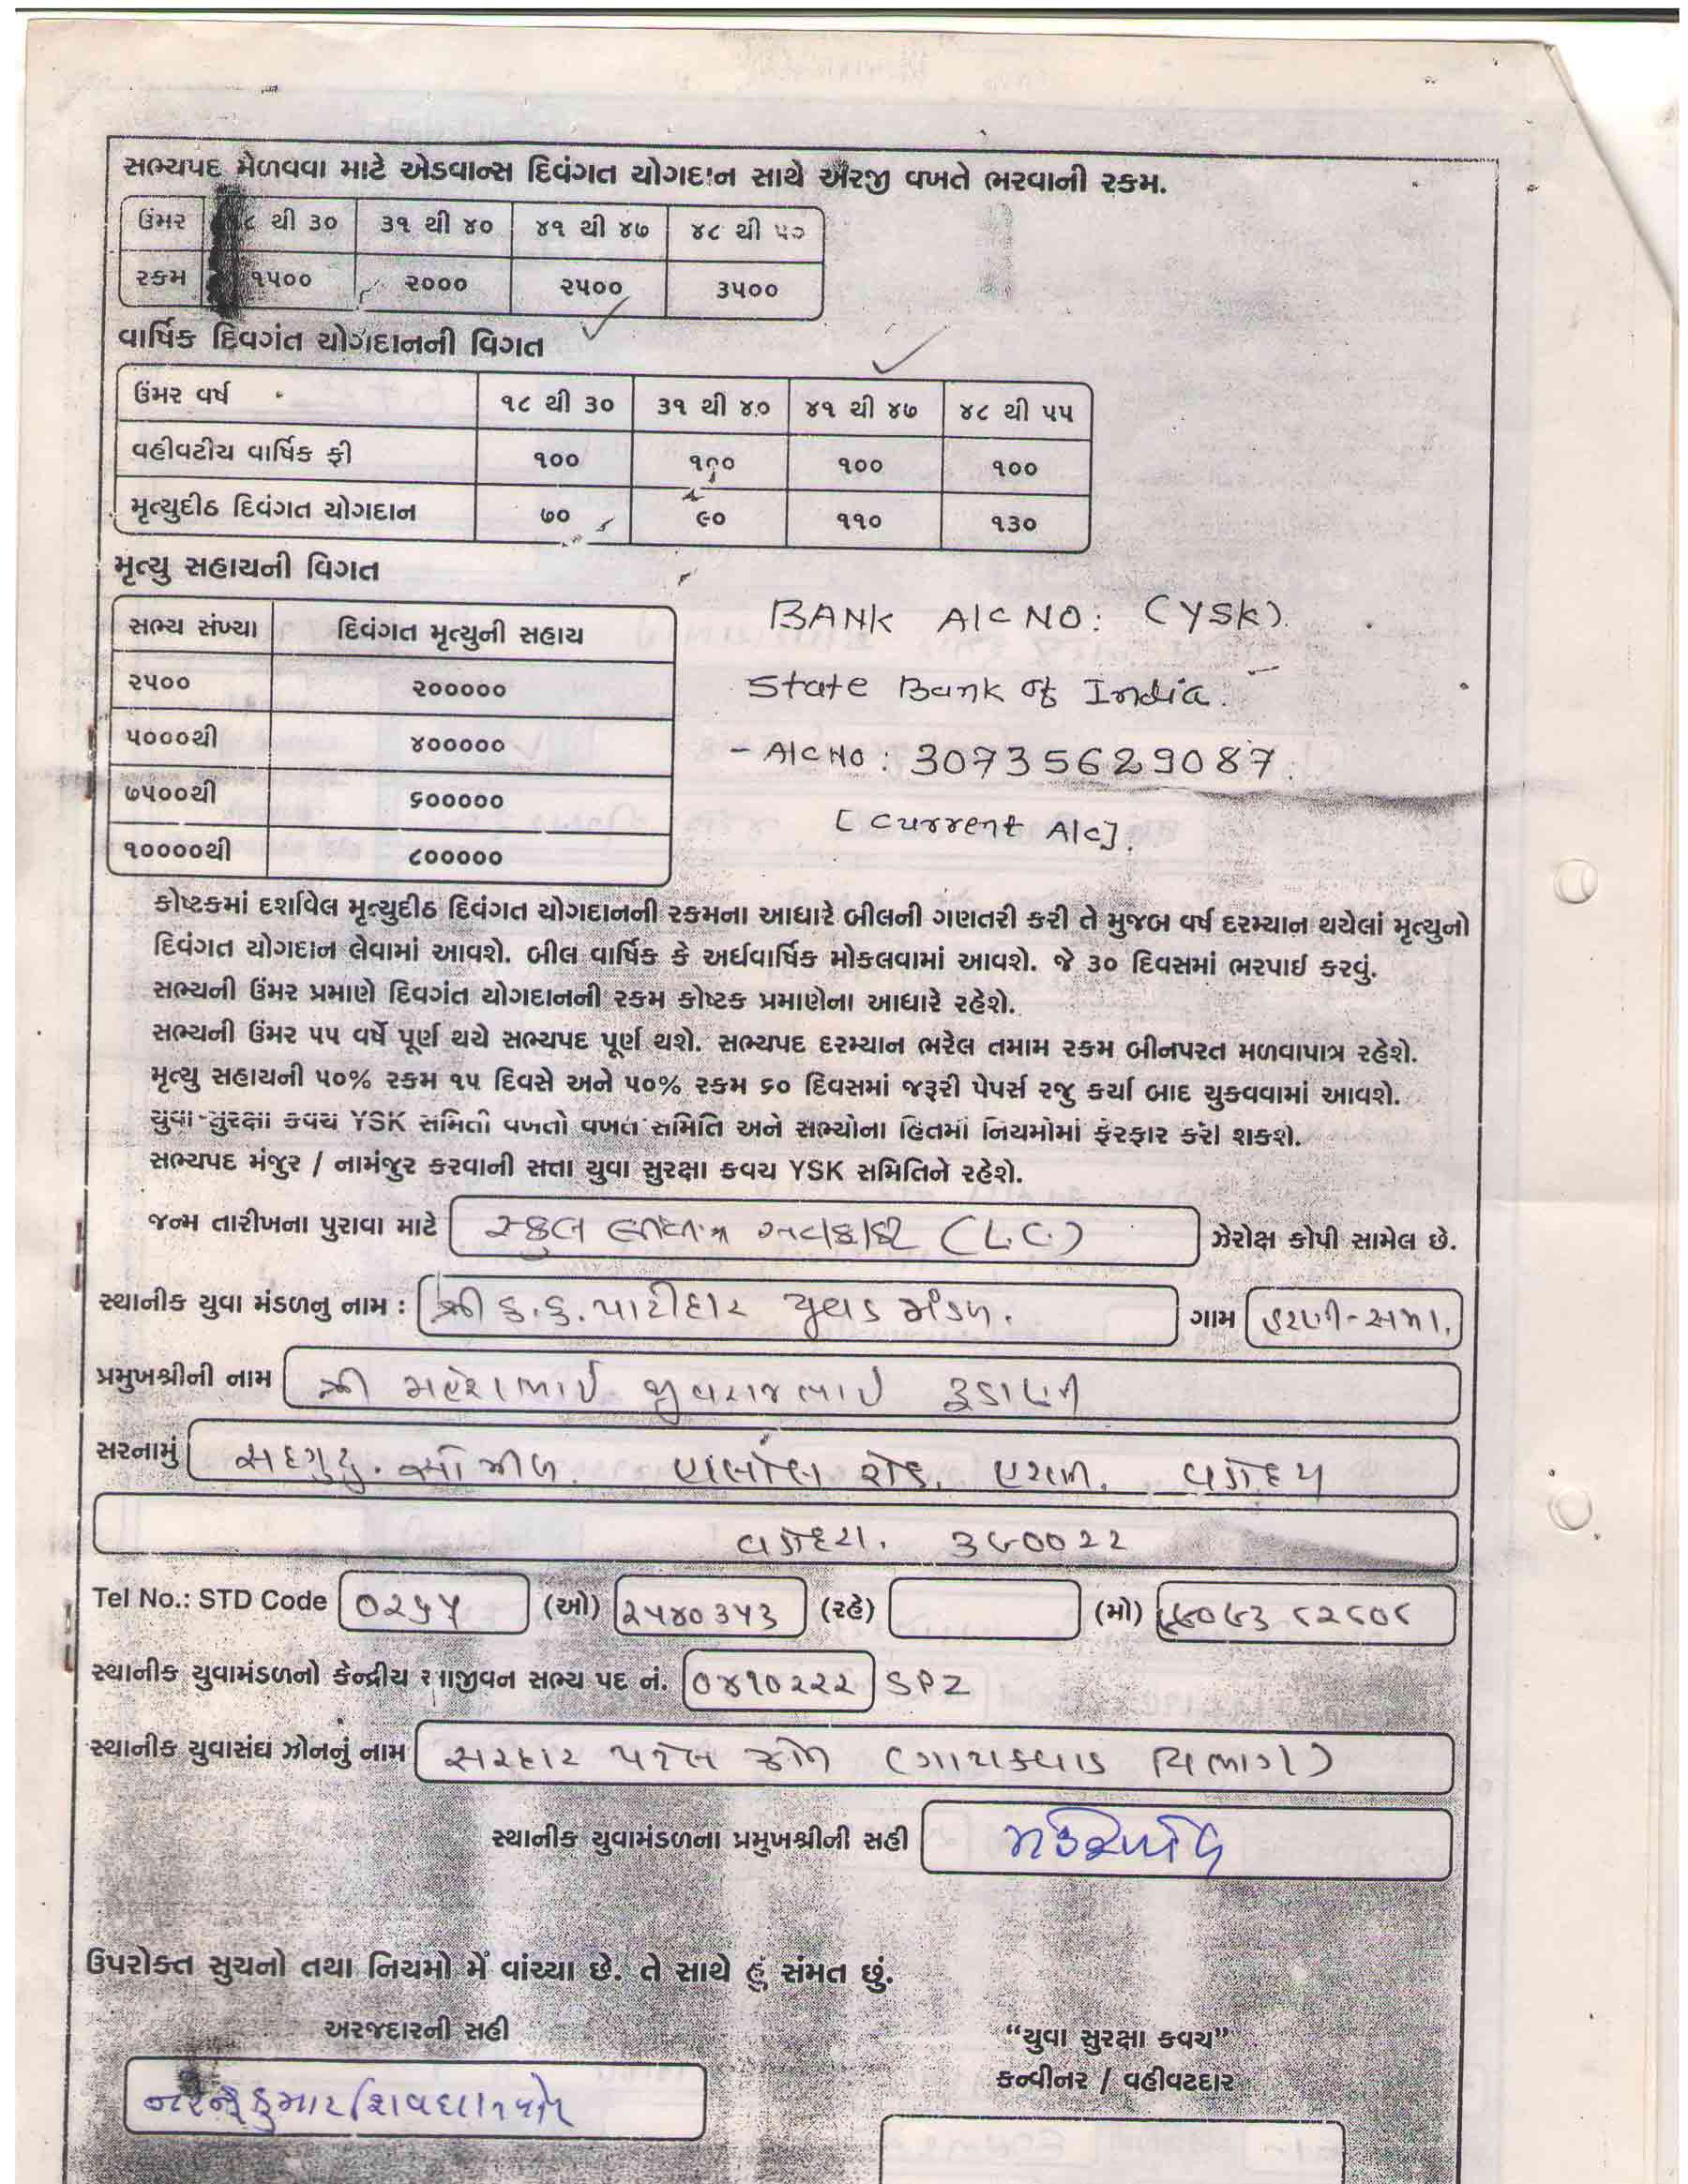 સભ્યપદ મેળવવા માટે એડવાન્સ દિવંગત યોગદાન સાથે અરજી વખતે ભરવાની રકમ.
ઉંમર ૧૮ થી ૩૦ ૩૧ થી ૪૦ ૪૧ થી ૪૭ ૪૮ થી ૫૦
રકમ ૧૫૦૦ ૨૦૦૦ ૨૫૦૦ ૩૫૦૦
વાર્ષિક દિવગંત યોગદાનની વિગત
ઉંમર વર્ષ ૧૮ થી ૩૦ ૩૧ થી ૪૦ ૪૧ થી ૪૭ ૪૮ થી ૫૫
વહીવટીય વાર્ષિક ફી ૧૦૦ ૧૦૦ ૧૦૦ ૧૦૦
મૃત્યુદીઠ દિવંગત યોગદાન ૭૦ ૯૦ ૧૧૦ ૧૩૦
મૃત્યુ સહાયની વિગત
સભ્ય સંખ્યા દિવંગત મૃત્યુની સહાય
૨૫૦૦ ૨૦૦૦૦૦
૫૦૦૦થી ૪૦૦૦૦૦
૭૫૦૦થી ૬૦૦૦૦૦
૧૦૦૦૦થી ૮૦૦૦૦૦
BANK A/C NO: (YSK).
State Bank of India.
- A/C NO: 30735629087.
[Current A/c].
કોષ્ટકમાં દર્શાવેલ મૃત્યુદીઠ દિવંગત યોગદાનની રકમના આધારે બીલની ગણતરી કરી તે મુજબ વર્ષ દરમ્યાન થયેલાં મૃત્યુનો
દિવંગત યોગદાન લેવામાં આવશે. બીલ વાર્ષિક કે અર્ધવાર્ષિક મોકલવામાં આવશે. જે ૩૦ દિવસમાં ભરપાઈ કરવું.
સભ્યની ઉંમર પ્રમાણે દિવગંત યોગદાનની રકમ કોષ્ટક પ્રમાણેના આધારે રહેશે.
સભ્યની ઉંમર ૫૫ વર્ષે પૂર્ણ થયે સભ્યપદ પૂર્ણ થશે. સભ્યપદ દરમ્યાન ભરેલ તમામ રકમ બીનપરત મળવાપાત્ર રહેશે.
મૃત્યુ સહાયની ૫૦% રકમ ૧૫ દિવસે અને ૫૦% રકમ ૬૦ દિવસમાં જરૂરી પેપર્સ રજુ કર્યા બાદ ચુકવવામાં આવશે.
યુવા-સુરક્ષા કવચ YSK સમિતી વખતો વખત સમિતિ અને સભ્યોના હિતમાં નિયમોમાં ફેરફાર કરી શકશે.
સભ્યપદ મંજુર / નામંજુર કરવાની સત્તા યુવા સુરક્ષા કવચ YSK સમિતિને રહેશે.
જન્મ તારીખના પુરાવા માટે સ્કુલ (L.C.) ઝેરોક્ષ કોપી સામેલ છે.
સ્થાનીક યુવા મંડળનુ નામ : શ્રી ક.ક. પાટીદાર યુવક મંડળ. ગામ હરણી-સમા.
પ્રમુખશ્રીની નામ શ્રી મહેશભાઈ જીવરાજભાઈ રૂડાણી
સરનામું સદગુરુ. સો મીલ. હાલોલ રોડ,
વડોદરા. ૩૯૦૦૨૨
Tel No.: STD Code ૦૨૬૫ (ઓ) ૨૫૪૦૩૫૩ (રહે) (મો)
સ્થાનીક યુવામંડળનો કેન્દ્રીય આજીવન સભ્ય પદ નં. ૦૪૧૦૨૨૨ SPZ
સ્થાનીક યુવાસંઘ ઝોનનું નામ સરદાર પટેલ ઝોન (ગાયકવાડ વિભાગ)
સ્થાનીક યુવામંડળના પ્રમુખશ્રીની સહી
ઉપરોક્ત સુચનો તથા નિયમો મેં વાંચ્યા છે. તે સાથે હું સંમત છું.
અરજદારની સહી
"યુવા સુરક્ષા કવચ"
કન્વીનર / વહીવટદાર